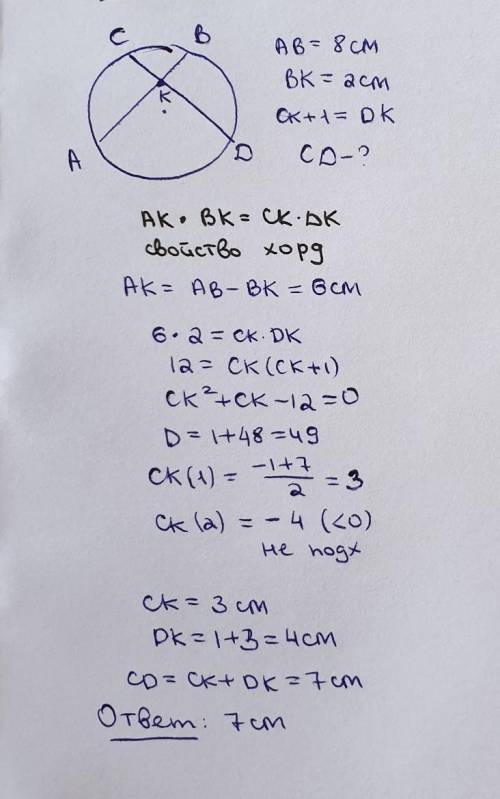 C B
K
A D
AB = 8 см
BK = 2 см
CK+1 = DK
CD - ?
AK · BK = CK · DK
свойство хорд
AK = AB - BK = 6 см
6 · 2 = CK · DK
12 = CK (CK+1)
CK² + CK - 12 = 0
D = 1+48 = 49
CK(1) = (-1+7)/2 = 3
CK(2) = -4 (<0)
не подх
CK = 3 см
DK = 1+3 = 4 см
CD = CK + DK = 7 см
Ответ: 7 см